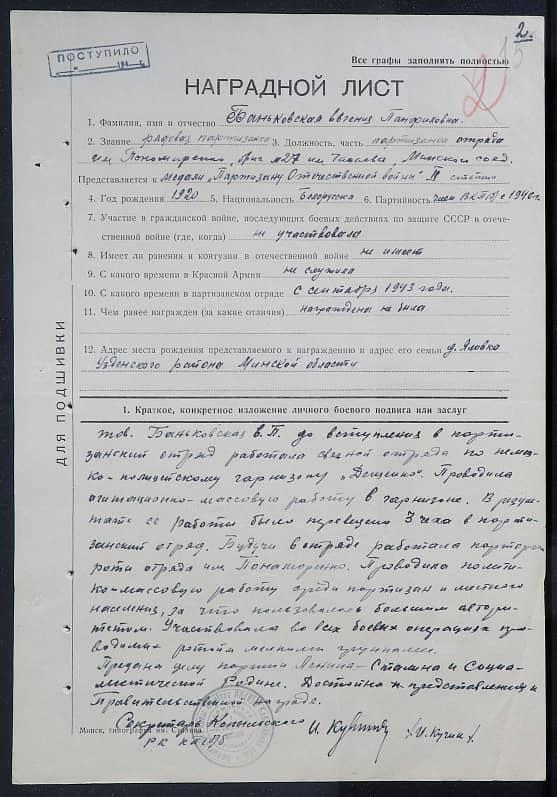 2.
15
2
ПОСТУПИЛО
194
Все графы заполнять полностью
НАГРАДНОЙ ЛИСТ
1. Фамилия, имя и отчество Баньковская Евгения Панфиловна.
2. Звание рядовая партизанка 3. Должность, часть партизанка отряда
им Пономаренко, бриг №27 им Чапаева, Минского соед.
Представляется к медали „Партизану Отечественной войны" II степени
4. Год рождения 1920 5. Национальность Белоруска 6. Партийность член ВКП/б/ с 1940 г.
7. Участие в гражданской войне, последующих боевых действиях по защите СССР в отече-
ственной войне (где, когда) не участвовала
8. Имеет ли ранения и контузии в отечественной войне не имеет
9. С какого времени в Красной Армии не служила
10. С какого времени в партизанском отряде с сентября 1943 года.
11. Чем ранее награжден (за какие отличия) награждена не была
12. Адрес места рождения представляемого к награждению и адрес его семьи д. Яловка
Узденского района Минской области
ДЛЯ ПОДШИВКИ
1. Краткое, конкретное изложение личного боевого подвига или заслуг
тов. Баньковская Е.П. до вступления в парти-
занский отряд работала связной отряда по немец-
ко-полицейскому гарнизону Проводила
агитационно-массовую работу в гарнизоне. В резуль-
тате её работы было переведено 3 чеха в парти-
занский отряд. Будучи в отряде работала парторгом
роты отряда им Понаморенко. Проводила полити-
ко-массовую работу среди партизан и местного
населения, за что пользовалась большим автори-
тетом. Участвовала во всех боевых операциях про-
водимых ротой мелкими группами.
Предана делу партии Ленина-Сталина и Социа-
листической Родине. Достойна к представлению к
Правительственной награде.
Секретарь Копыльского
РК КП/б/Б
И. Кузин /И. Кузин/.
Минск, типография им. Сталина